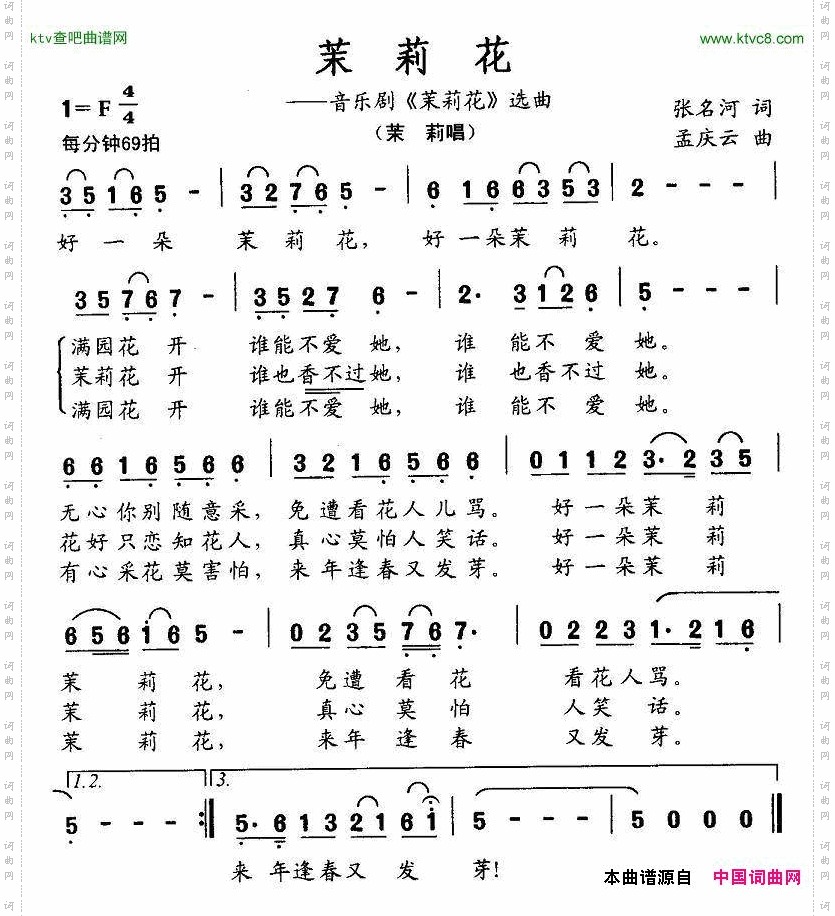 ktv查吧曲谱网
www.ktvc8.com
茉 莉 花
1=F 4/4
——音乐剧《茉莉花》选曲
张名河 词
每分钟69拍
(茉 莉唱)
孟庆云 曲
3 5 1 6 5 - | 3 2 7 6 5 - | 6 1 6 6 3 5 3 | 2 - - - |
好 一 朵 茉 莉 花, 好 一 朵 茉 莉 花。
3 5 7 6 7 - | 3 5 2 7 6 - | 2· 3 1 2 6 | 5 - - - |
满园花 开 谁能不爱 她, 谁 能不 爱 她。
茉莉花 开 谁也香不过她, 谁 也香不过 她。
满园花 开 谁能不爱 她, 谁 能不 爱 她。
6 6 1 6 5 6 6 | 3 2 1 6 5 6 6 | 0 1 1 2 3· 2 3 5 |
无心你别随意采, 免遭看花人儿骂。 好一朵茉 莉
花好只恋知花人, 真心莫怕人笑话。 好一朵茉 莉
有心采花莫害怕, 来年逢春又发芽。 好一朵茉 莉
6 5 6 1 6 5 - | 0 2 3 5 7 6 7· | 0 2 2 3 1· 2 1 6 |
茉 莉花, 免遭看花 看花人骂。
茉 莉花, 真心莫怕 人笑 话。
茉 莉花, 来年逢春 又发 芽。
1.2. 3.
5 - - - :| 5· 6 1 3 2 1 6 1 | 5 - - - | 5 0 0 0 ||
来 年逢春又 发 芽!
本曲谱源自 中国词曲网
词曲网